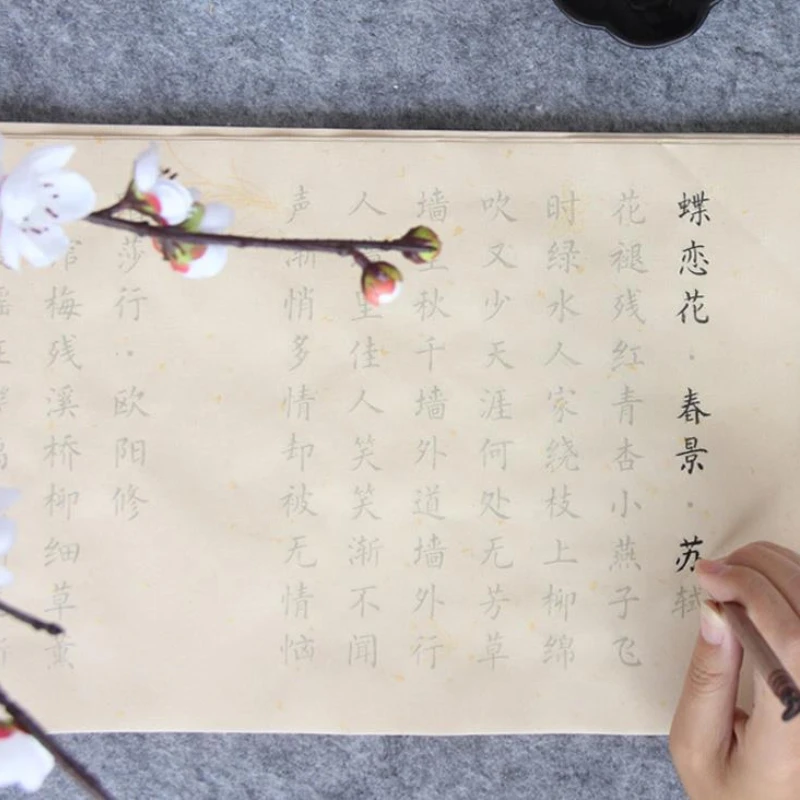 蝶恋花·春景·苏轼
花褪残红青杏小燕子飞
时绿水人家绕枝上柳绵
吹又少天涯何处无芳草
墙里秋千墙外道墙外行
人墙里佳人笑笑渐不闻
声渐悄多情却被无情恼
莎行·欧阳修
馆梅残溪桥柳细草薰